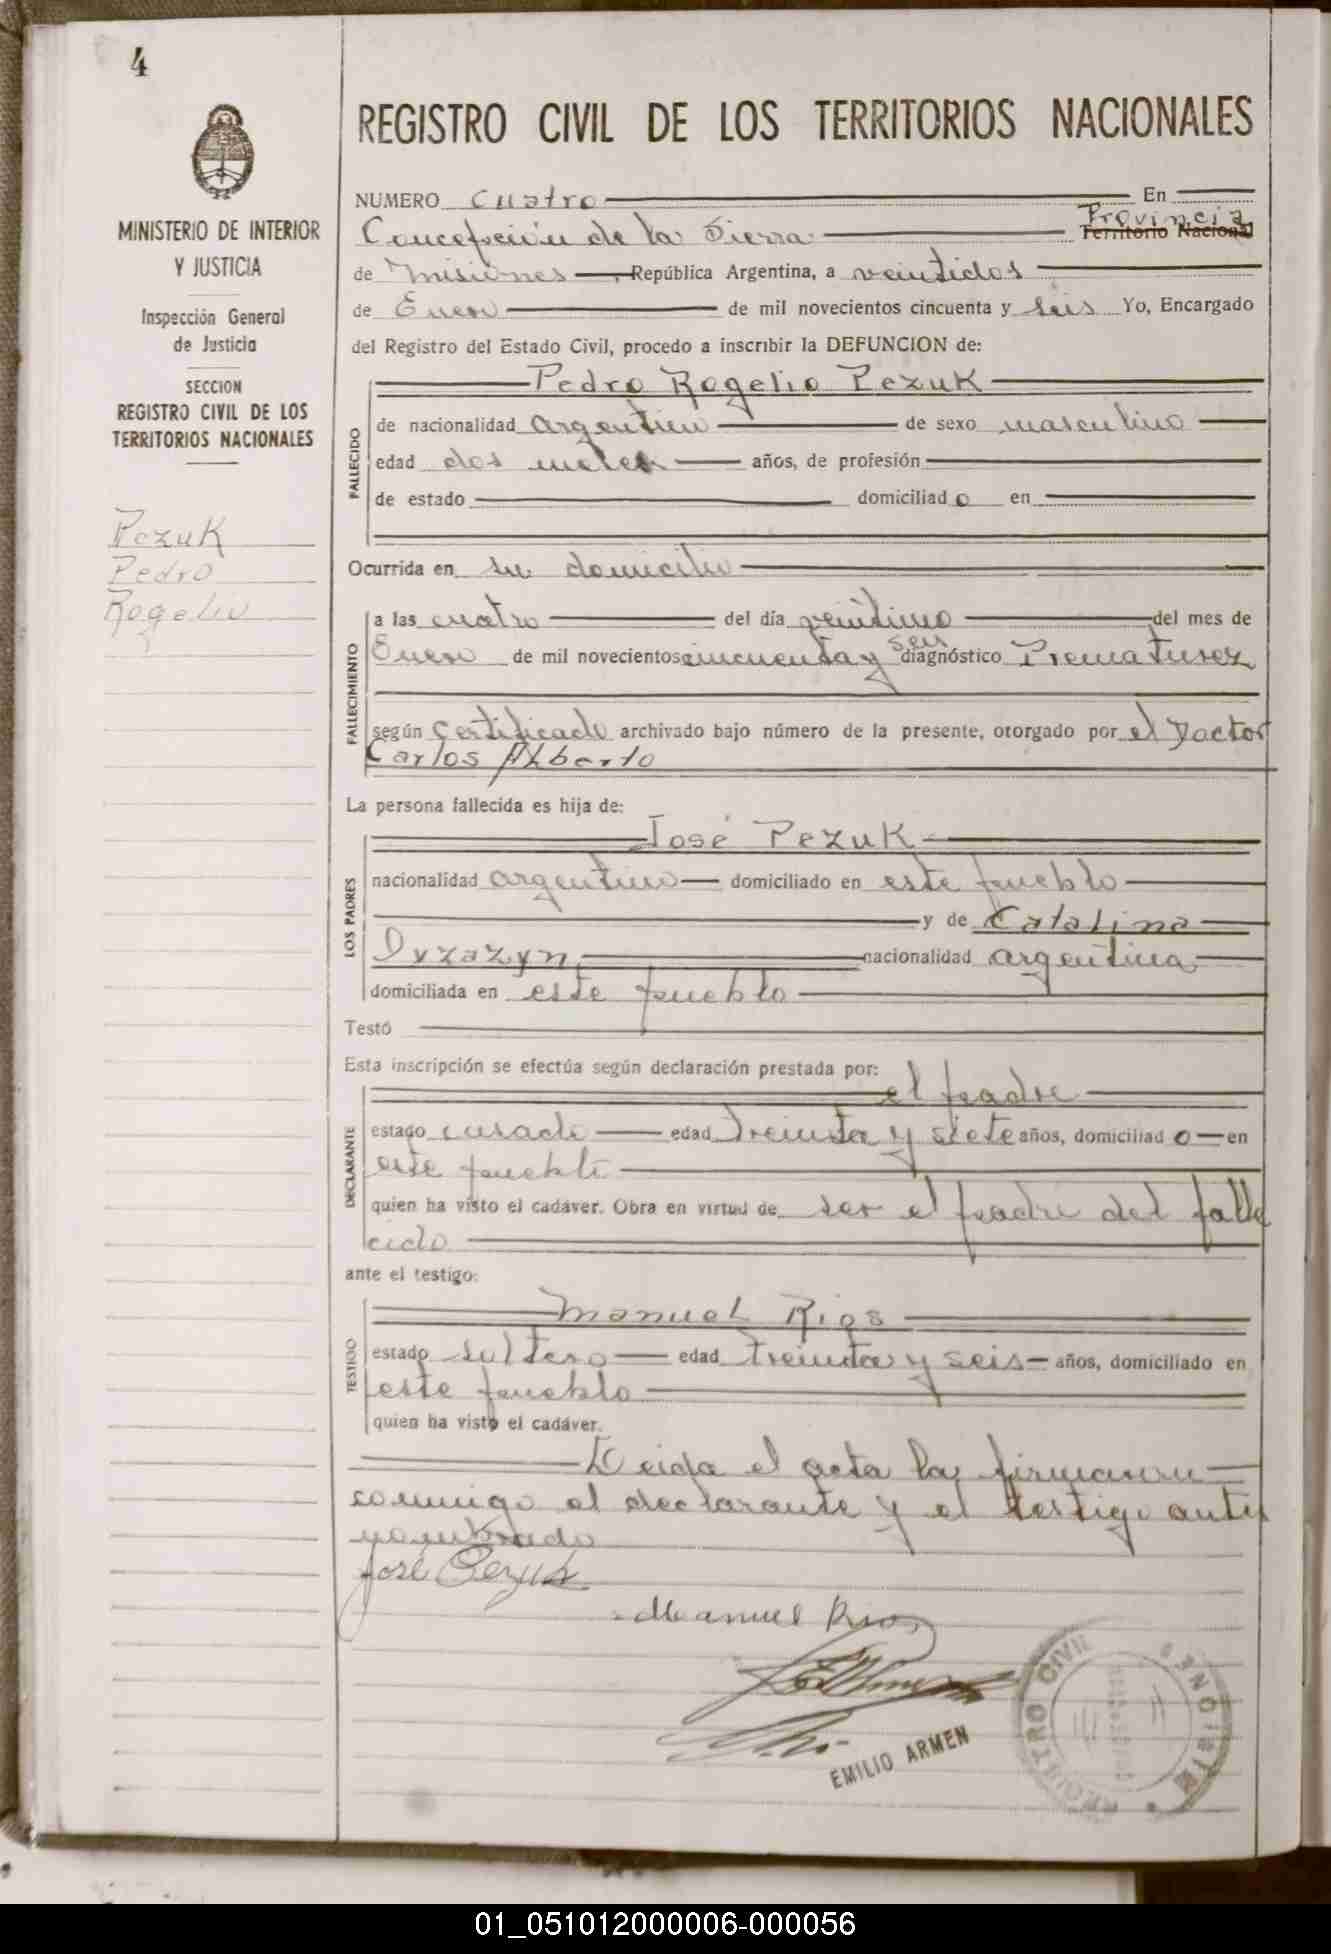 4
REGISTRO CIVIL DE LOS TERRITORIOS NACIONALES
MINISTERIO DE INTERIOR
Y JUSTICIA
Inspección General
de Justicia
SECCION
REGISTRO CIVIL DE LOS
TERRITORIOS NACIONALES
Pezuk
Pedro
Rogelio
NUMERO cuatro En
Concepción de la Sierra Provincia Territorio Nacional
de Misiones, República Argentina, a veintidos
de Enero de mil novecientos cincuenta y seis Yo, Encargado
del Registro del Estado Civil, procedo a inscribir la DEFUNCION de:
FALLECIDO
Pedro Rogelio Pezuk
de nacionalidad argentino de sexo masculino
edad dos meses años, de profesión
de estado domiciliado en
Ocurrida en su domicilio
FALLECIMIENTO
a las cuatro del día veintiuno del mes de
Enero de mil novecientos cincuenta y seis diagnóstico Prematurez
según certificado archivado bajo número de la presente, otorgado por el Doctor
Carlos Alberto
La persona fallecida es hija de:
LOS PADRES
José Pezuk
nacionalidad argentino domiciliado en este pueblo
y de Catalina
nacionalidad argentina
domiciliada en este pueblo
Testó
Esta inscripción se efectúa según declaración prestada por:
DECLARANTE
el padre
estado casado edad treinta y siete años, domiciliado en
este pueblo
quien ha visto el cadáver. Obra en virtud de ser el padre del falle
cido
ante el testigo:
TESTIGO
Manuel Rios
estado soltero edad treinta y seis años, domiciliado en
este pueblo
quien ha visto el cadáver.
Leida el acta la firmaron
conmigo el declarante y el testigo ante
nombrado
José Pezuk
Manuel Rios
EMILIO ARMEN
REGISTRO CIVIL
MISIONES
01_051012000006-000056